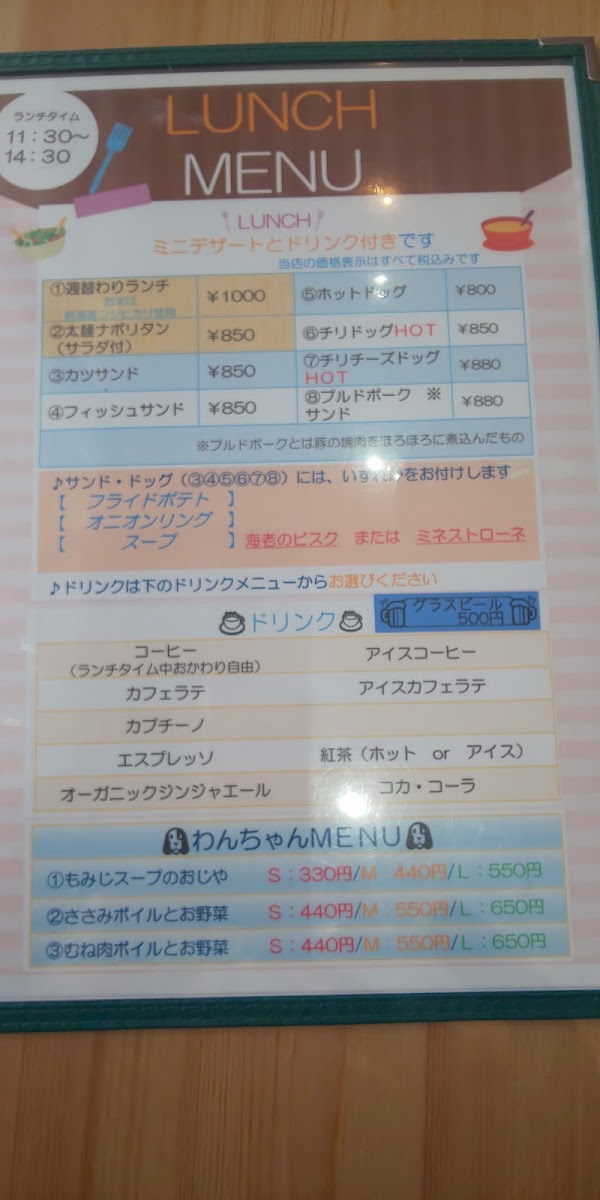 ランチタイム
11：30～
14：30
LUNCH
MENU
LUNCH
ミニデザートとドリンク付きです
当店の価格表示はすべて税込みです
①週替わりランチ ￥1000
②太麺ナポリタン
（サラダ付） ￥850
③カツサンド ￥850
④フィッシュサンド ￥850
⑤ホットドッグ ￥800
⑥チリドッグHOT ￥850
⑦チリチーズドッグ
HOT ￥880
⑧プルドポーク ※
サンド ￥880
※プルドポークとは豚の塊肉をほろほろに煮込んだもの
♪サンド・ドッグ（③④⑤⑥⑦⑧）には、いずれかをお付けします
【 フライドポテト 】
【 オニオンリング 】
【 スープ 】海老のビスク または ミネストローネ
♪ドリンクは下のドリンクメニューからお選びください
ドリンク
グラスビール
500円
コーヒー アイスコーヒー
（ランチタイム中おかわり自由）
カフェラテ アイスカフェラテ
カプチーノ
エスプレッソ 紅茶（ホット or アイス）
オーガニックジンジャエール コカ・コーラ
わんちゃんMENU
①もみじスープのおじや S：330円/M：440円/L：550円
②ささみボイルとお野菜 S：440円/M：550円/L：650円
③むね肉ボイルとお野菜 S：440円/M：550円/L：650円